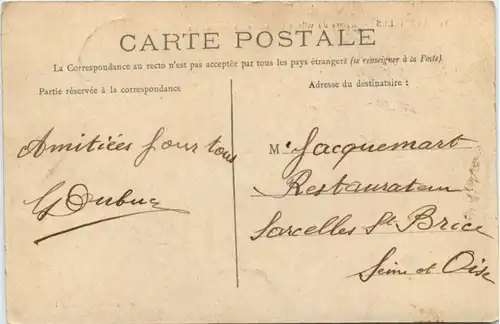 CARTE POSTALE
La Correspondance au recto n'est pas acceptée par tous les pays étrangers (se renseigner à la Poste)
Partie réservée à la correspondance
Adresse du destinataire :
Amitiées pour tous
G Dubuc
Mr Jacquemart
Restaurateur
Sarcelles St Brice
Seine et Oise